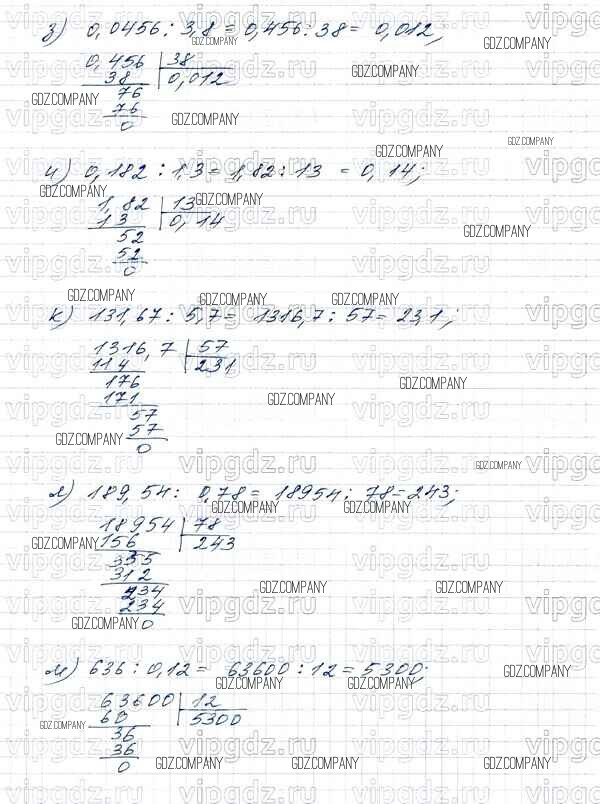 з) 0,0456 : 3,8 = 0,456 : 38 = 0,012;
0,456 | 38
38 | 0,012
76
76
0
и) 0,182 : 1,3 = 1,82 : 13 = 0,14;
1,82 | 13
13 | 0,14
52
52
0
к) 131,67 : 5,7 = 1316,7 : 57 = 23,1;
1316,7 | 57
114 | 231
176
171
57
57
0
л) 189,54 : 0,78 = 18954 : 78 = 243;
18954 | 78
156 | 243
335
312
234
234
0
м) 636 : 0,12 = 63600 : 12 = 5300;
63600 | 12
60 | 5300
36
36
0
GDZ.COMPANY
vipgdz.ru